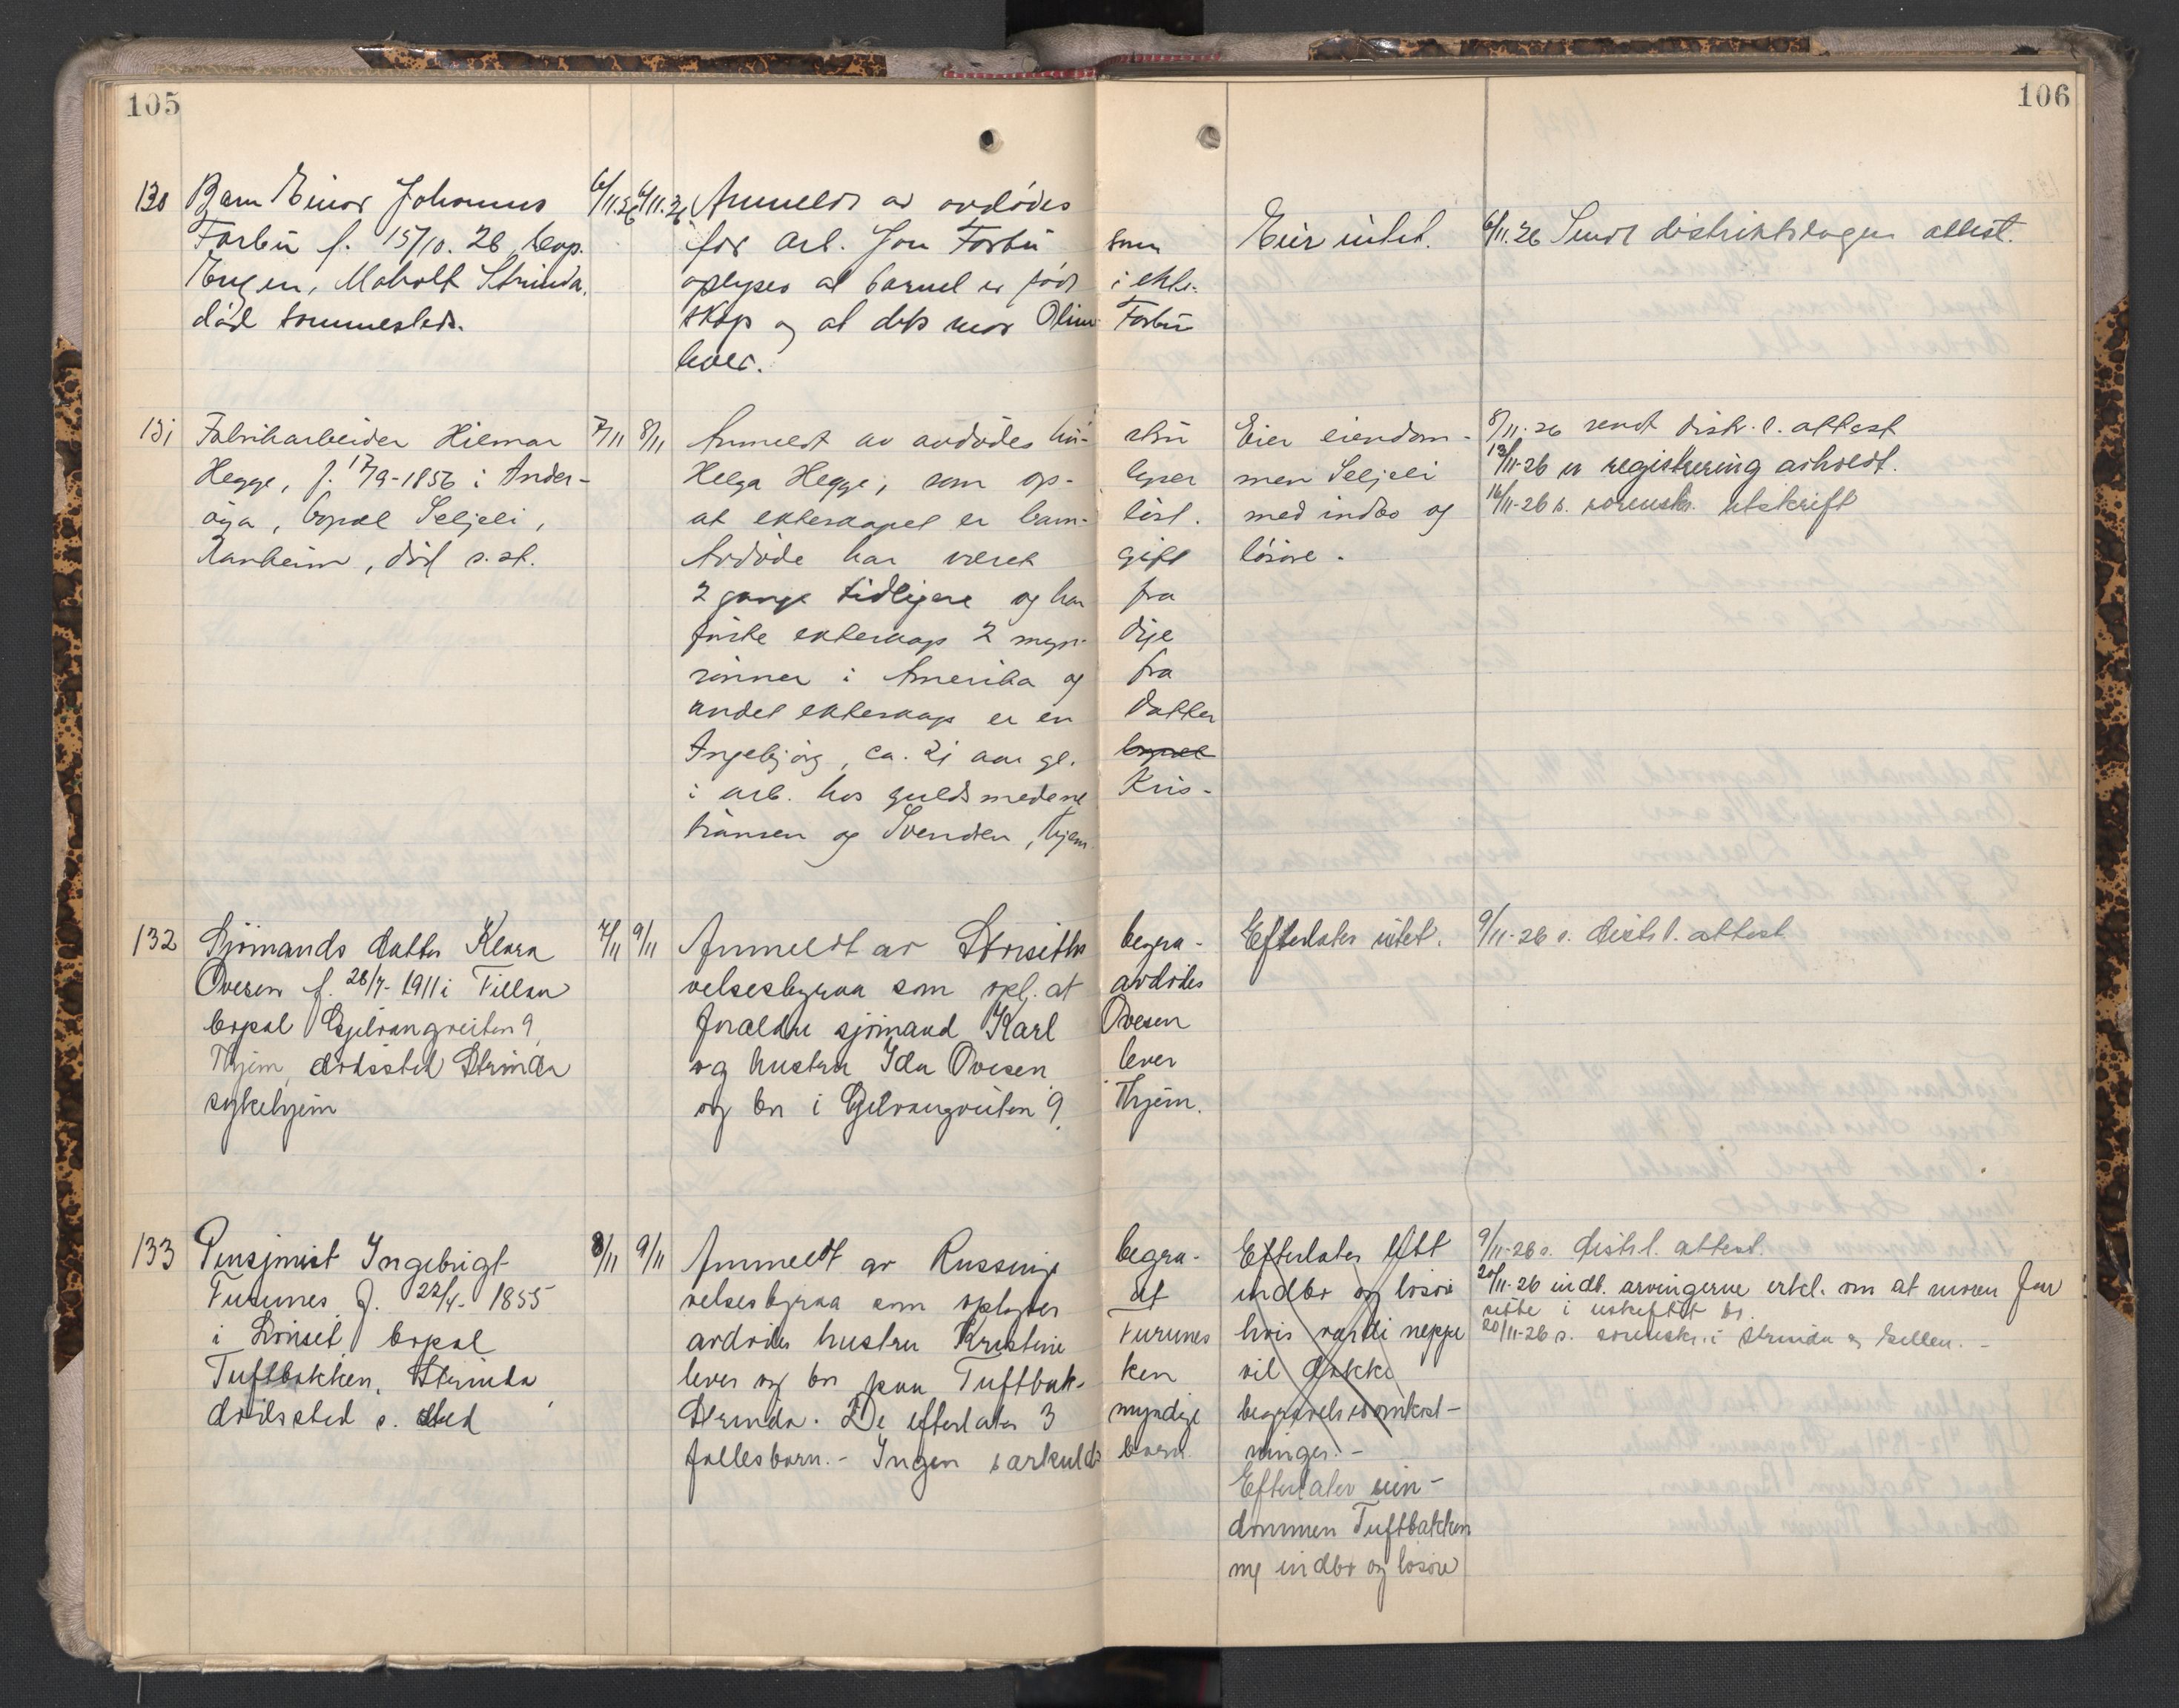 105
106
130 Barn Einar Johannes 6/11.26 6/11.26 Anmeldt av avdødes
Forbu f. 15/10. 26, bop.
Engen, Moholt Strinda,
død sammesteds.
far arb. Jon Forbu som
oplyser at barnet er født i ekte-
skap og at dets mor Oline Forbu
lever.
Eier intet. 6/11.26 Sendt distriktslægen attest.
131 Fabrikarbeider Hilmar 7/11 8/11 Anmeldt av avdødes hu- stru
Hegge, f. 17/9-1856 i Inder-
øya, bopæl Seljeli,
Ranheim, død s. st.
Helga Hegge, som op- lyser
at ekteskapet er barn- løst.
Avdøde har været gift
2 gange tidligere og har fra
første ekteskap 2 myn- dige
sønner i Amerika og fra
andet ekteskap er en datter
Ingebjørg, ca. 21 aar gl. bopæl
i arb. hos guldsmedene Kris-
tiansen og Svendsen, Thjem.
Eier eiendom-
men Seljeli
med indbo og
løsøre.
8/11.26 sendt distr. l. attest
13/11-26 er registrering avholdt.
16/11-26 s. sorenskr. utskrift
132 Sjømands datter Klara 7/11 9/11 Anmeldt av Storseths begra-
Ovesen f. 28/7-1911 i Fillan
bopæl Gjelvangveiten 9,
Thjem, dødssted Strinda
sykehjem
velsesbyraa som opl. at avdødes
forældre sjømand Karl Ovesen
og hustru Ida Ovesen lever
og bor i Gjelvangveiten 9, Thjem.
Efterlater intet. 9/11-26 s. distr l. attest
133 Pensjonist Ingebrigt 8/11 9/11 Anmeldt av Russings begra-
Furunes f. 22/4-1855
i Lønset bopæl
Tuftbakken, Strinda,
dødssted s. sted
velsesbyraa som oplyser at
avdødes hustru Kristine Furunes
lever og bor paa Tuftbak- ken
Strinda. De efterlater 3 myndige
fællesbarn.- Ingen særkulds barn.
Efterlater litt
indbo og løsøre
hvis værdi neppe
vil dække
begravelsesomkost-
ninger.-
Efterlater eien-
dommen Tuftbakken
m/ indbo og løsøre
9/11-26 s. distr l. attest.
20/11-26 indl. arvingerne erkl. om at moren faar
sitte i uskiftet bo.
20/11-26 s. sorenskr. i Strinda